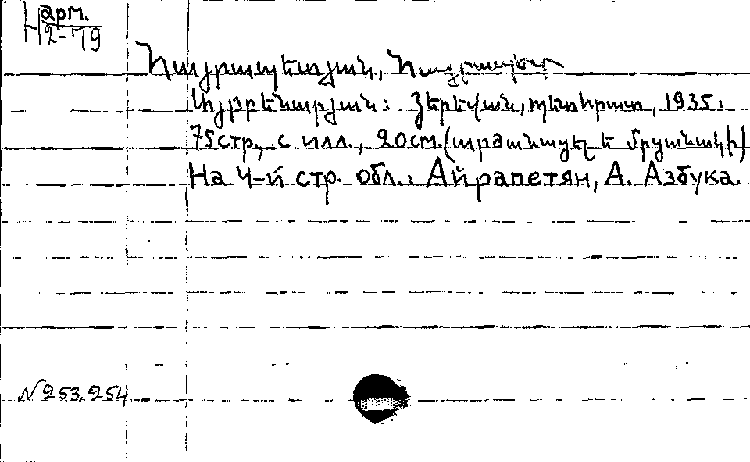 Н арм.
2-79
Հայրապետյան, Հայրապետ
Այբբենարյան: Յերեվան, պետհրատ, 1935:
75стр., с илл., 20см. (արտանացել է մրցանակի)
На 4-й стр. обл.: Айрапетян, А. Азбука.
№253,254